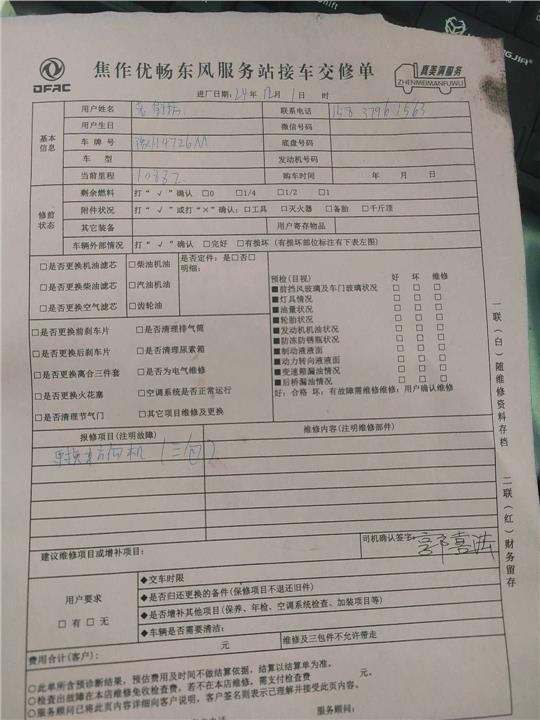 DFAC
焦作优畅东风服务站接车交修单
真美满服务
ZHENMEIMANFUWU
进厂日期：24年12月1日 时
基本信息
用户姓名
联系电话 158 3796 1563
用户生日
微信号码
车牌号 豫H4726M
底盘号码
车型
发动机号码
当前里程
购车时间 年 月 日
修前状态
剩余燃料 打“√”确认 □0 □1/4 □1/2 □1
附件状况 打“√”或打“×”确认：□工具 □灭火器 □备胎 □千斤顶
其它装备 用户寄存物品
车辆外部情况 打“√”确认 □完好 □有損坏 (有損坏部位标注有下表左图)
□是否更换机油滤芯 □柴油机油
□是否更换柴油滤芯 □汽油机油
□是否更换空气滤芯 □齿轮油
是否定件：是□否□
明细：
□是否更换前刹车片 □是否清理排气筒
□是否更换后刹车片 □是否清理尿素箱
□是否更换离合三件套 □是否为电气维修
□是否更换火花塞 □空调系统是否正常运行
□是否清理节气门 □其它项目维修及更换
预检(目视) 好 坏 维修
■前挡风玻璃及车门玻璃状况 □ □ □
■灯具情况 □ □ □
■油量状况 □ □ □
■轮胎状况 □ □ □
■发动机机油状况 □ □ □
■防冻防锈瓶状况 □ □ □
■制动液液面 □ □ □
■动力转向液液面 □ □ □
■变速箱漏油情况 □ □ □
■后桥漏油情况 □ □ □
好：合格 坏：有故障需维修维修：用户确认维修
报修项目(注明故障) 维修内容(注明维修部件)
方向机 (三包)
建议维修项目或增补项目：
司机确认签字：郭喜洪
用户要求
□有 □无
◆交车时限
◆是否归还更换的备件(保修项目不退还旧件)
◆是否增补其他项目(保养、年检、空调系统检查、加装项目等)
◆车辆是否需要清洁：
费用合计(客户)： 元 维修及三包件不允许带走
○此单所含预诊断结果，预估费用及时间不做结算依据，结算以结算单为准。
○检查出故障在本店维修免收检查费，若不在本店维修，需支付检查费 元。
○服务顾问已将此页内容详细向客户说明，客户签名则表示已理解并接受此页内容。
客户签名： 服务顾问：
一联(白)随维修资料存档
二联(红)财务留存